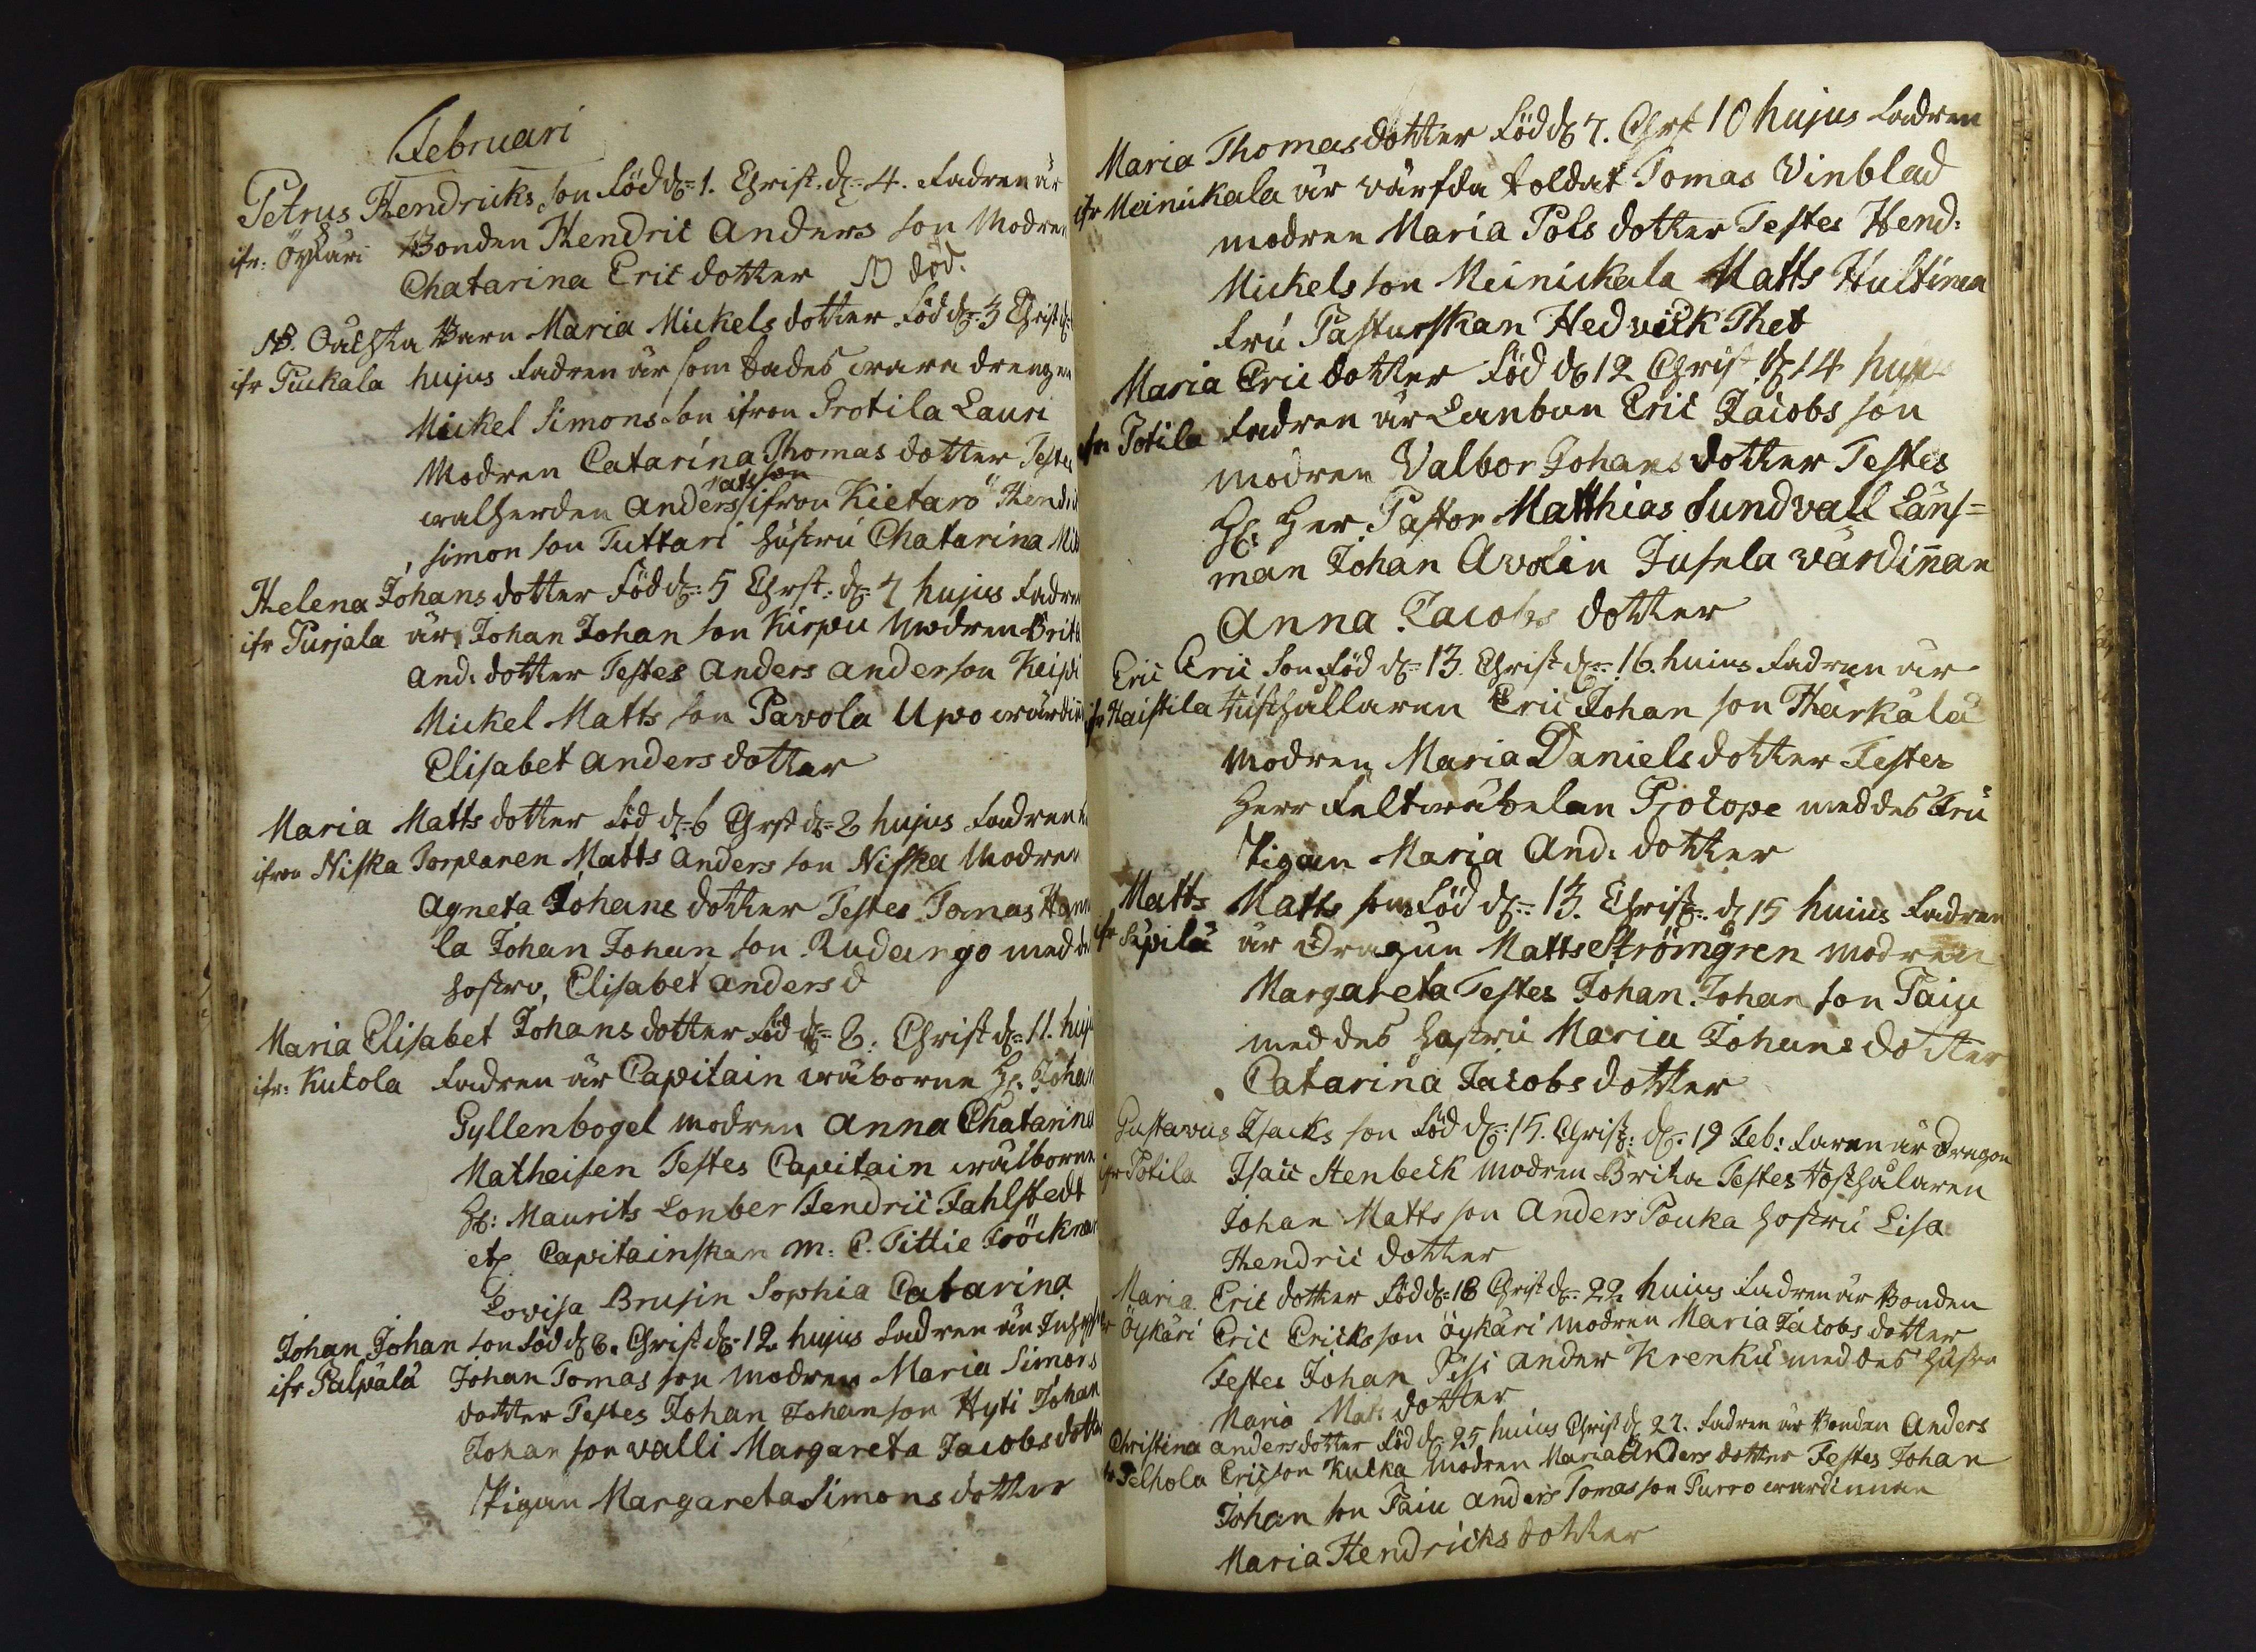 Februari
Petrus Hendricks son Född dÿ= 1. Christ. dÿ= 4. Fadren är
ifr: Öykäri Bonden Hendric Anders son Modren
Chatarina Eric dotter död.
NB. Oächta Barn Maria Mickels dotter Född dÿ= 3 Christ dÿ
ifr Puckala hujus Fadren är som sades wara drengen
Mickel Simons son ifron Protila Lauri
Modren Catarina Thomas dotter Testes
walherden Anders ifron Kietarö Hendric
Simon son Tuttari hustru Chatarina
Helena Johans dotter Född dÿ= 5 Chrst: dÿ= 7 hujus Fadren
ifr Purjala är, Johan Johan son Kirpu Modren Brita
And: dotter Testes Anders Anderson Keipi
Mickel Matts son Pavola Upo wärdin
Elisabet Anders dotter
Maria Matts dotter Föd dÿ= 6 Chrst dÿ= 8 hujus Fadren
ifron Niska Torparen Matts Anders son Niska Modren
Agneta Johans dotter Testes Tomas Hann
la Johan Johan son Rudango med de
hostro, Elisabet Anders d
Maria Elisabet Johans dotter Föd dÿ= 8. Christ dÿ= 11. huj
ifr: Kukola Fadren är Capitain wälborne H: Johan
Gyllenbogel Modren Anna Chatarina
Matheisen Testes Capitain wälborne
H: Maurits Lonber Fendric Fahlstedt
etc Capitainskan M: C. Tittie Fröcknar
Lovisa Brusin Sophia Catarina
Johan Johan son Född dÿ 8. Christ dÿ= 12 hujus Fadren är
ifr Pälpälä Johan Tomas son Modren Maria Simons
dotter Testes Johan Johan son Hyti Johan
Johan son Valli Margareta Jacobs dotter
Pigan Margareta Simons dotter
Maria Thomas dotter Född dÿ 7. Chrst 10 hujus Fadren
ifr Meinikala är wärfda Soldat Tomas Vinblad
modren Maria Pols dotter Testes Hend:
Mickels son Meinickala Matts Hultinen
Fru Pastorskan Hedvick Thet
Maria Eric dotter Född dÿ 12 Christ dÿ 14 hujus
ifr Potila Fadren är Lanbon Eric Jacobs son
modren Valbor Johans dotter Testes
H: Her Pastor Matthias Sundvall Läns=
man Johan Avelin Jusela wärdinnan
Anna Jacobs dotter
Eric Eric son Född dÿ= 13. Christ dÿ= 16. huius Fadren är
ifr Haistila Rusthållaren Eric Johan son Thärkälä
Modren Maria Daniels dotter Testes
Herr Feltwäbelen Procope med des Fru
Pigan Maria And: dotter
Matts Matts son Född dÿ= 13. Christ: dÿ 15 huius Fadren
ifr Säpilä är Dragun Matts Strömgren modren
Margareta Testes Johan Johan son Paiu
med des hostru Maria Johans dotter
Catarina Jacobs dotter
Gustavus Isacks son Född dÿ= 15. Christ: dÿ. 19 Feb: Faren är Dragon
ifr Potila Isac Stenbeck modren Brita Testes Rosthålaren
Johan Matts son Anders Pouka hostru Lisa
Hendric dotter
Maria Eric dotter Född dÿ= 18 Christ dÿ= 22 huius Fadren är Bonden
ifr Öykäri Eric Ericks son Öykäri modren Maria Jacobs dotter
Testes Johan Pisi Ander Krenku med des hustru
Maria Mats dotter
Christina Anders dotter Född dÿ= 25 huius Christ dÿ 27. Fadren är Bonden Anders
ifr Pelhola Ericson Kucka Modren Maria Anders dotter Testes Johan
Johan son Paiu Anders Tomas son Purro wärdinnan
Maria Hendricks dotter